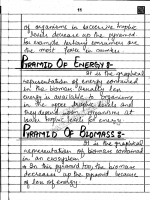 11
of organisms in successive trophic
levels decrease up the pyramid.
for example tertiary consumers are
the most few in number.
PYRAMID OF ENERGY :-
It is the graphical
representation of energy contained
in the biomass. Usually less
energy is available to organisms
in the upper trophic levels and
they depend upon organisms at
lower trophic levels for energy.
PYRAMID OF BIOMASS :-
It is the graphical
representation of biomass contained
in an ecosystem.
In this pyramid too, the biomass
decreases up the pyramid because
of loss of energy